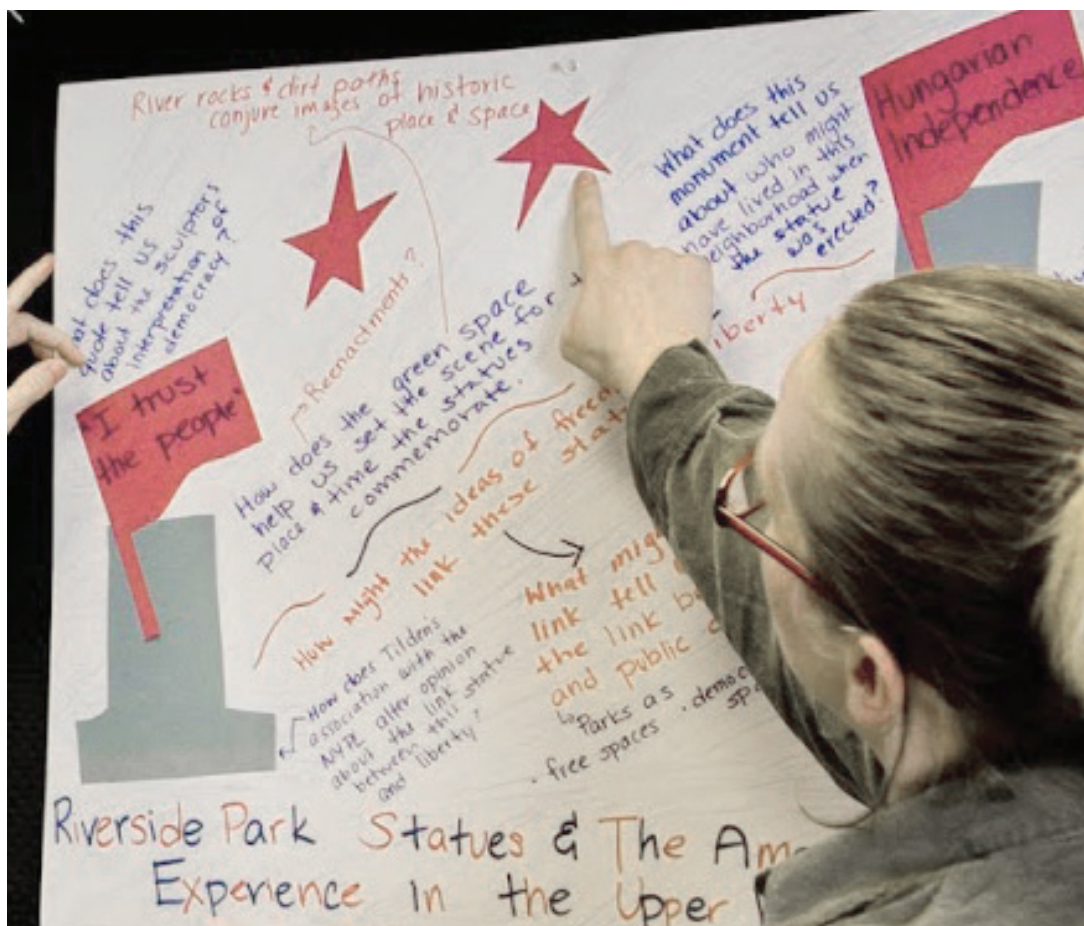 River rocks & dirt paths
conjure images of historic
place & space
What does this
monument tell us
about who might
have lived in this
neighborhood when
the statue
was
erected?
Hungarian
Independence
What does this
quote tell us
about the sculptors
interpretation of
democracy?
"I trust
the people"
Reenactments?
How does the green space
help us set the scene for
place & time the statues
commemorate.
liberty
How might the ideas of
link these
What
link tell
the link
and public
Parks as
free spaces
How does Tilden's
association with the
NYPL alter opinion
about the link
between this statue
and liberty?
Riverside Park Statues & The
Experience In the Upper